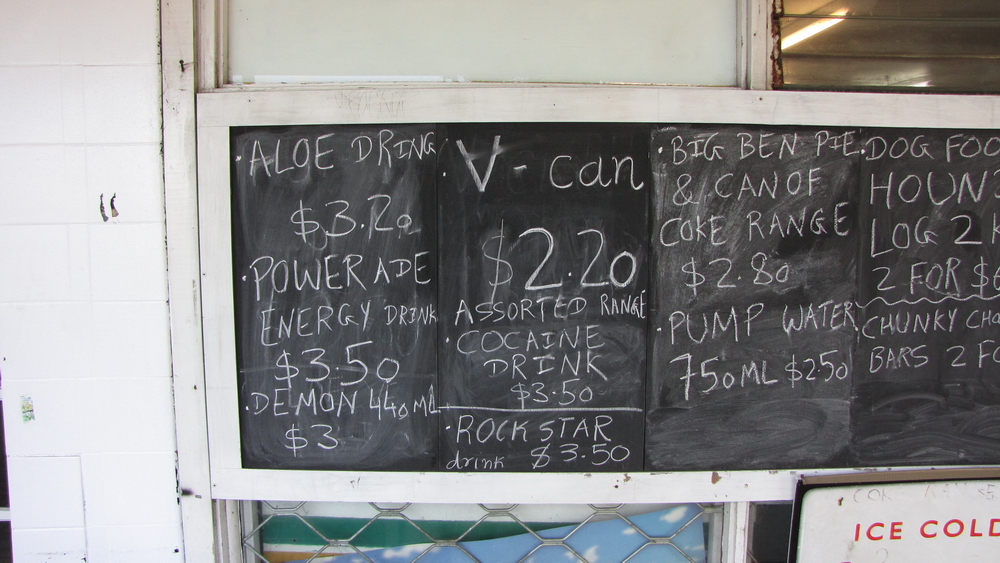 · ALOE DRING
$3.20
· POWERADE
ENERGY DRINK
$3.50
· DEMON 440 ML
$3
· V - can
$2.20
ASSORTED RANGE
· COCAINE
DRINK
$3.50
· ROCK STAR
drink $3.50
· BIG BEN PIE
& CAN OF
COKE RANGE
$2.80
· PUMP WATER
750ML $2.50
· DOG FOO
HOUN
LOG 2 K
2 FOR $
CHUNKY CHO
BARS 2 FO
ICE COLD